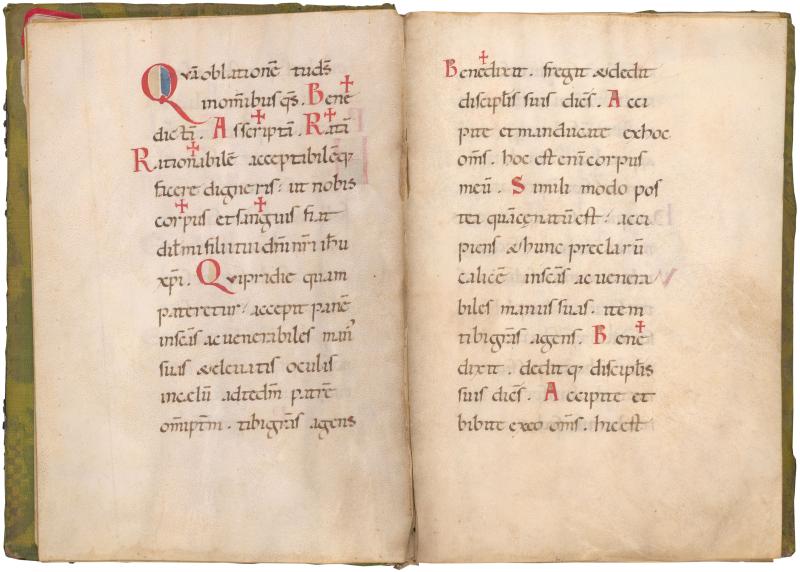 Quā oblationē tu ds̄
in om̄ibus qs̄. Bene
dictā. Asscriptā. Ratā
Rationabilē acceptibilēq;
facere digneris. ut nobis
corpus et sanguis fiat
dil̄mi filii tui dn̄i nr̄i ih̄u
xp̄i. Qui pridie quam
pateretur. accepit panē
in sc̄as ac venerabiles man'
suas & elevatis oculis
in celū ad te dm̄ patrē
om̄iptm̄. tibi gr̄as agens
Benedixit. fregit & dedit
discipl̄is suis dicēs. Acci
pite et manducate ex hoc
om̄s. hoc est eni corpus
meū. Simili modo pos
tea quā cenatū est. acci
piens & hunc preclarū
calicē in sc̄as ac venera
biles manus suas. item
tibi gr̄as agens. Bene
dixit. dedit q; discipl̄is
suis dicēs. Accipite et
bibite ex eo om̄s. hic est